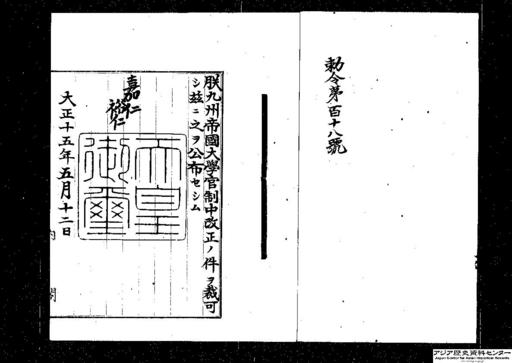 勅令第百十八號
朕九州帝國大學官制中改正ノ件ヲ裁可
シ玆ニ之ヲ公布セシム
嘉仁
裕仁
天皇
御璽
大正十五年五月十二日
内閣
アジア歴史資料センター
Japan Center for Asian Historical Records